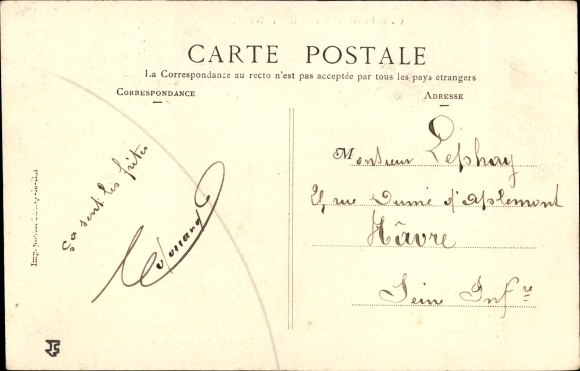 CARTE POSTALE
La Correspondance au recto n'est pas acceptée par tous les pays étrangers
CORRESPONDANCE
ADRESSE
Ça sent les frites
Monsieur Lephay
rue Dumé d'Aplemont
Hâvre
Seine Infre